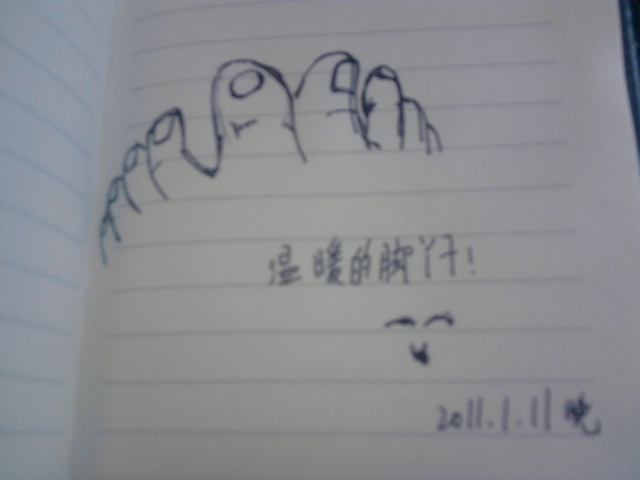 温暖的脚丫子!
2011.1.11 晚